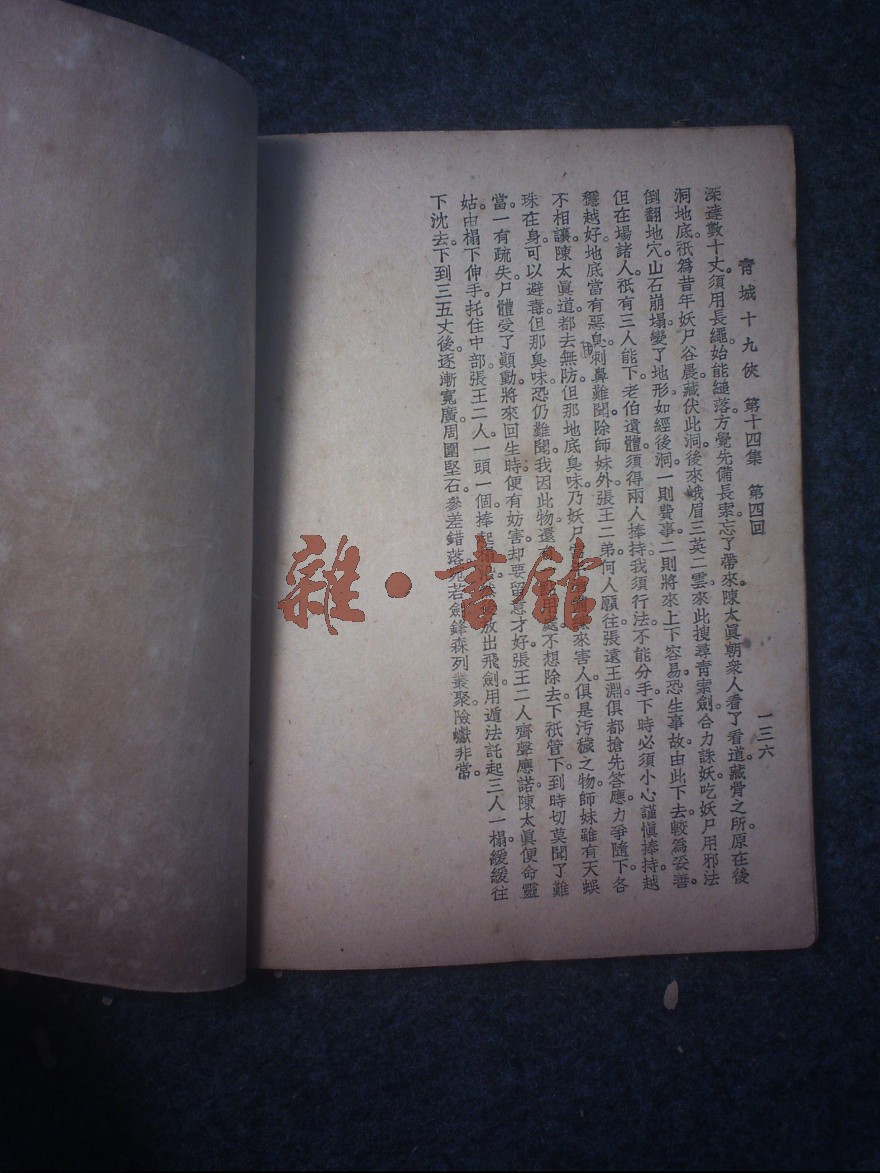 青城十九俠 第十四集 第四回
一三六
深達數十丈。須用長繩始能縋落。方覺先備長索。忘了帶來。陳太眞朝衆人看了看道。藏骨之所。原在後
洞地底。祇爲昔年妖尸谷晨藏伏此洞。後來峨眉三英二雲來此搜尋靑索劍。合力誅妖。吃妖尸用邪法
倒翻地穴。山石崩塌。變了地形。如經後洞。一則費事。二則將來上下容易。恐生事故。由此下去。較爲妥善。
但在場諸人。祇有三人能下。老伯遺體。須得兩人捧持。我須行法。不能分手。下時必須小心謹愼。捧持越
穩越好。地底當有惡臭。刺鼻難聞。除師妹外。張王二弟。何人願往。張遠王淵。俱都搶先答應。力爭隨下。各
不相讓。陳太眞道。都去無防。但那地底臭味。乃妖尸 來害人。俱是汚穢之物。師妹雖有天蜈
珠在身。可以避毒。但那臭味。恐仍難聞。我因此物還 用處。不想除去。下祇管下。到時切莫聞了難
當。一有疏失。尸體受了顚動。將來回生時。便有妨害。却要留意才好。張王二人。齊聲應諾。陳太眞便命靈
姑由榻下伸手托住中部。張王二人。一頭一個。捧起 放出飛劍。用遁法託起三人一榻。緩緩往
下沈去。下到三五丈後。逐漸寬廣。周圍堅石。參差錯落。宛若劍鋒森列叢聚。險巇非常。
雜·書館